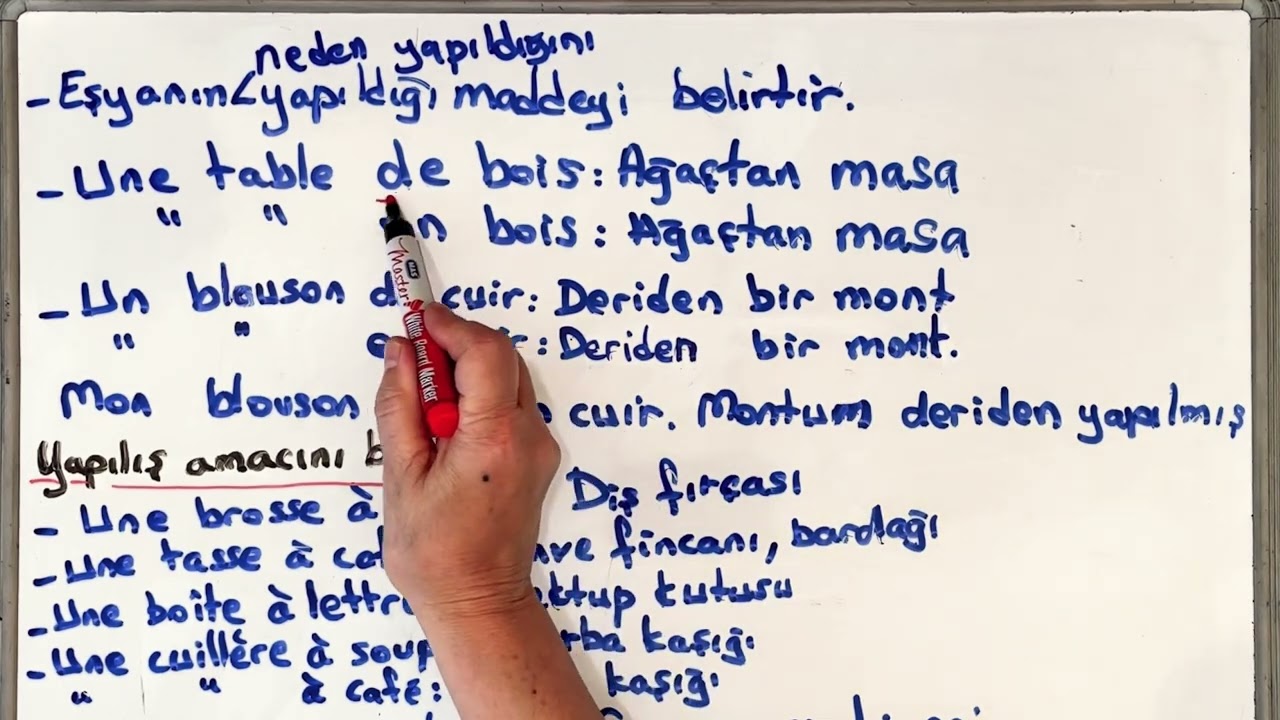 neden yapıldığını
- Eşyanın < yapıldığı maddeyi belirtir.
- Une table de bois: Ağaçtan masa
" " en bois: Ağaçtan masa
- Un blouson de cuir: Deriden bir mont
" " : Deriden bir mont.
Mon blouson cuir. Montum deriden yapılmış
Yapılış amacını
- Une brosse à Diş fırçası
- Une tasse à fincanı, bardağı
- Une boîte à kutusu
- Une cuillère à kaşığı
" " à café: kaşığı
MAS
Master
White Board Marker